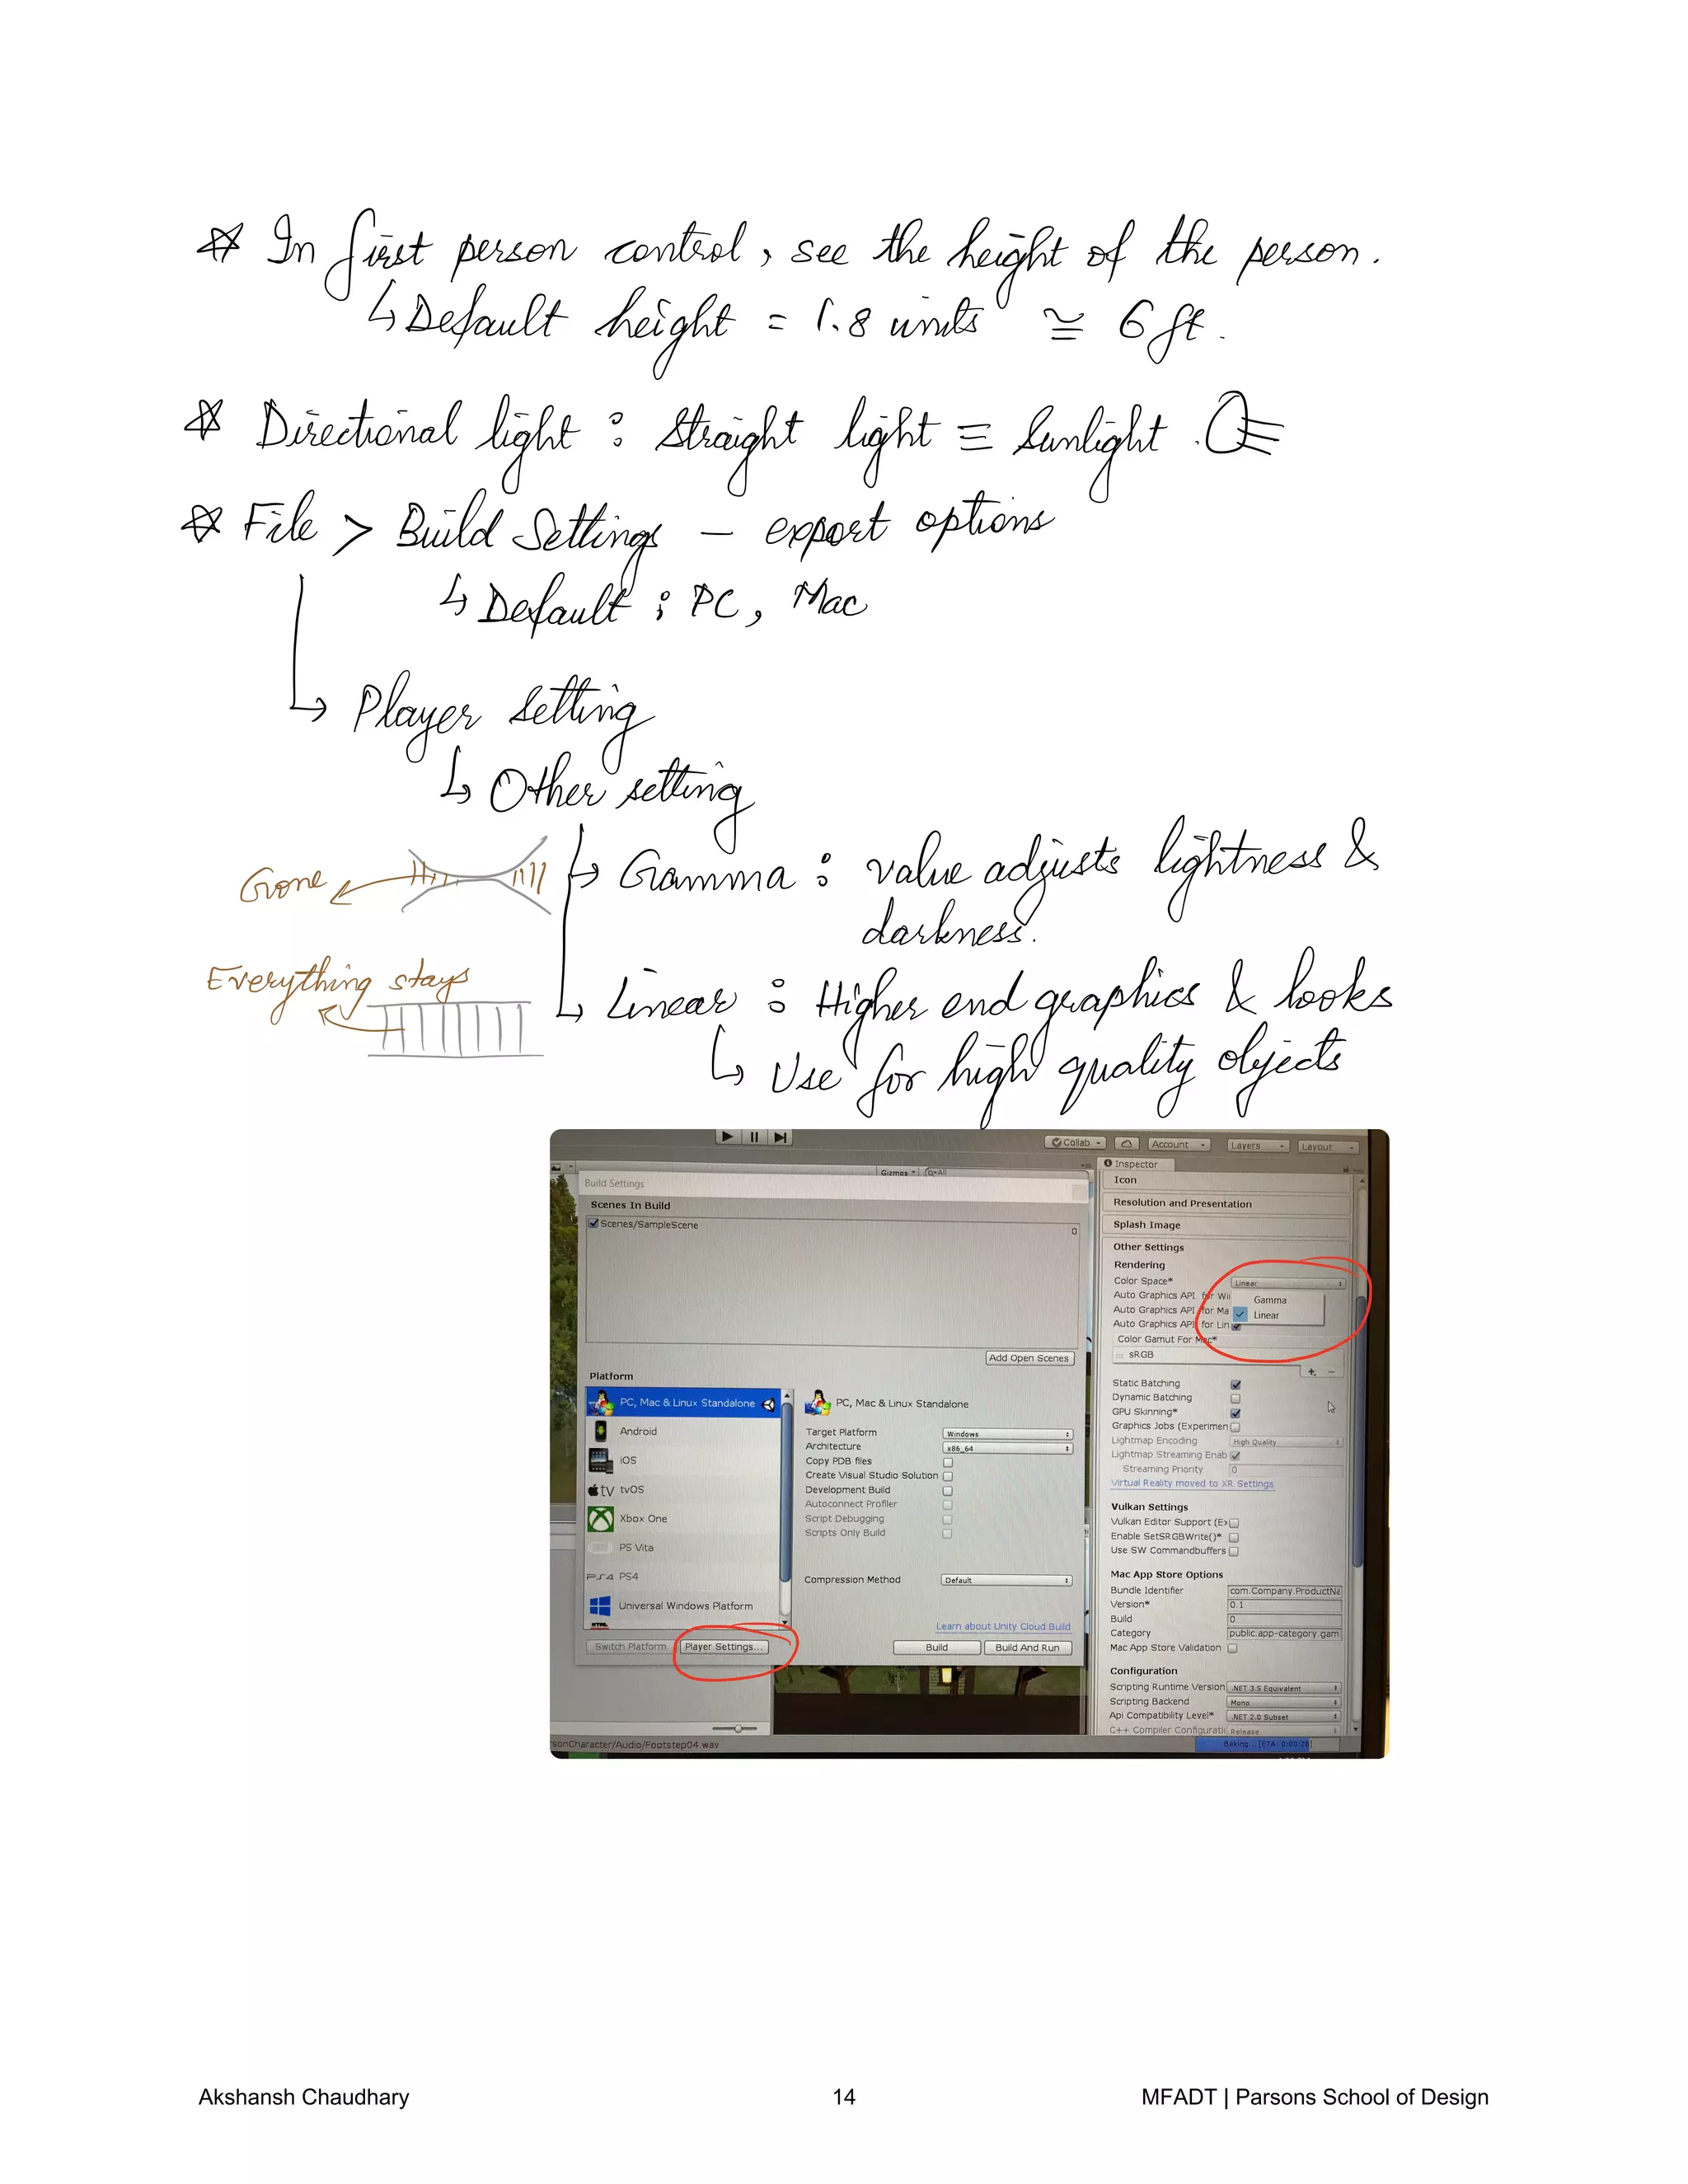 ☆ In first person control, see the height of the person.
↳ Default height = 1.8 units ≅ 6 ft.
☆ Directional light : Straight light ≡ Sunlight.
☆ File > Build Settings – export options
↳ Default : PC, Mac
↳ Player setting
↳ Other setting
Gone
↳ Gamma : value adjusts lightness &
darkness.
Everything stays
↳ Linear : Higher end graphics & looks
↳ Use for high quality objects
Collab
Account
Layers
Layout
Gizmos
All
Inspector
Build Settings
Scenes In Build
Scenes/SampleScene
0
Add Open Scenes
Platform
PC, Mac & Linux Standalone
Android
iOS
tv tvOS
Xbox One
PS Vita
PS4 PS4
Universal Windows Platform
HTML
Switch Platform
Player Settings...
PC, Mac & Linux Standalone
Target Platform Windows
Architecture x86_64
Copy PDB files
Create Visual Studio Solution
Development Build
Autoconnect Profiler
Script Debugging
Scripts Only Build
Compression Method Default
Learn about Unity Cloud Build
Build
Build And Run
Icon
Resolution and Presentation
Splash Image
Other Settings
Rendering
Color Space* Linear
Auto Graphics API for Wi
Gamma
Auto Graphics API for Ma
Linear
Auto Graphics API for Lin
Color Gamut For Mac*
sRGB
Static Batching
Dynamic Batching
GPU Skinning*
Graphics Jobs (Experimen
Lightmap Encoding High Quality
Lightmap Streaming Enab
Streaming Priority 0
Virtual Reality moved to XR Settings
Vulkan Settings
Vulkan Editor Support (Ex
Enable SetSRGBWrite()*
Use SW Commandbuffers
Mac App Store Options
Bundle Identifier com.Company.ProductNa
Version* 0.1
Build 0
Category public.app-category.gam
Mac App Store Validation
Configuration
Scripting Runtime Version .NET 3.5 Equivalent
Scripting Backend Mono
Api Compatibility Level* .NET 2.0 Subset
C++ Compiler Configurati Release
sonCharacter/Audio/Footstep04.wav
Baking... [ETA: 0:00:28]
Akshansh Chaudhary
14
MFADT | Parsons School of Design